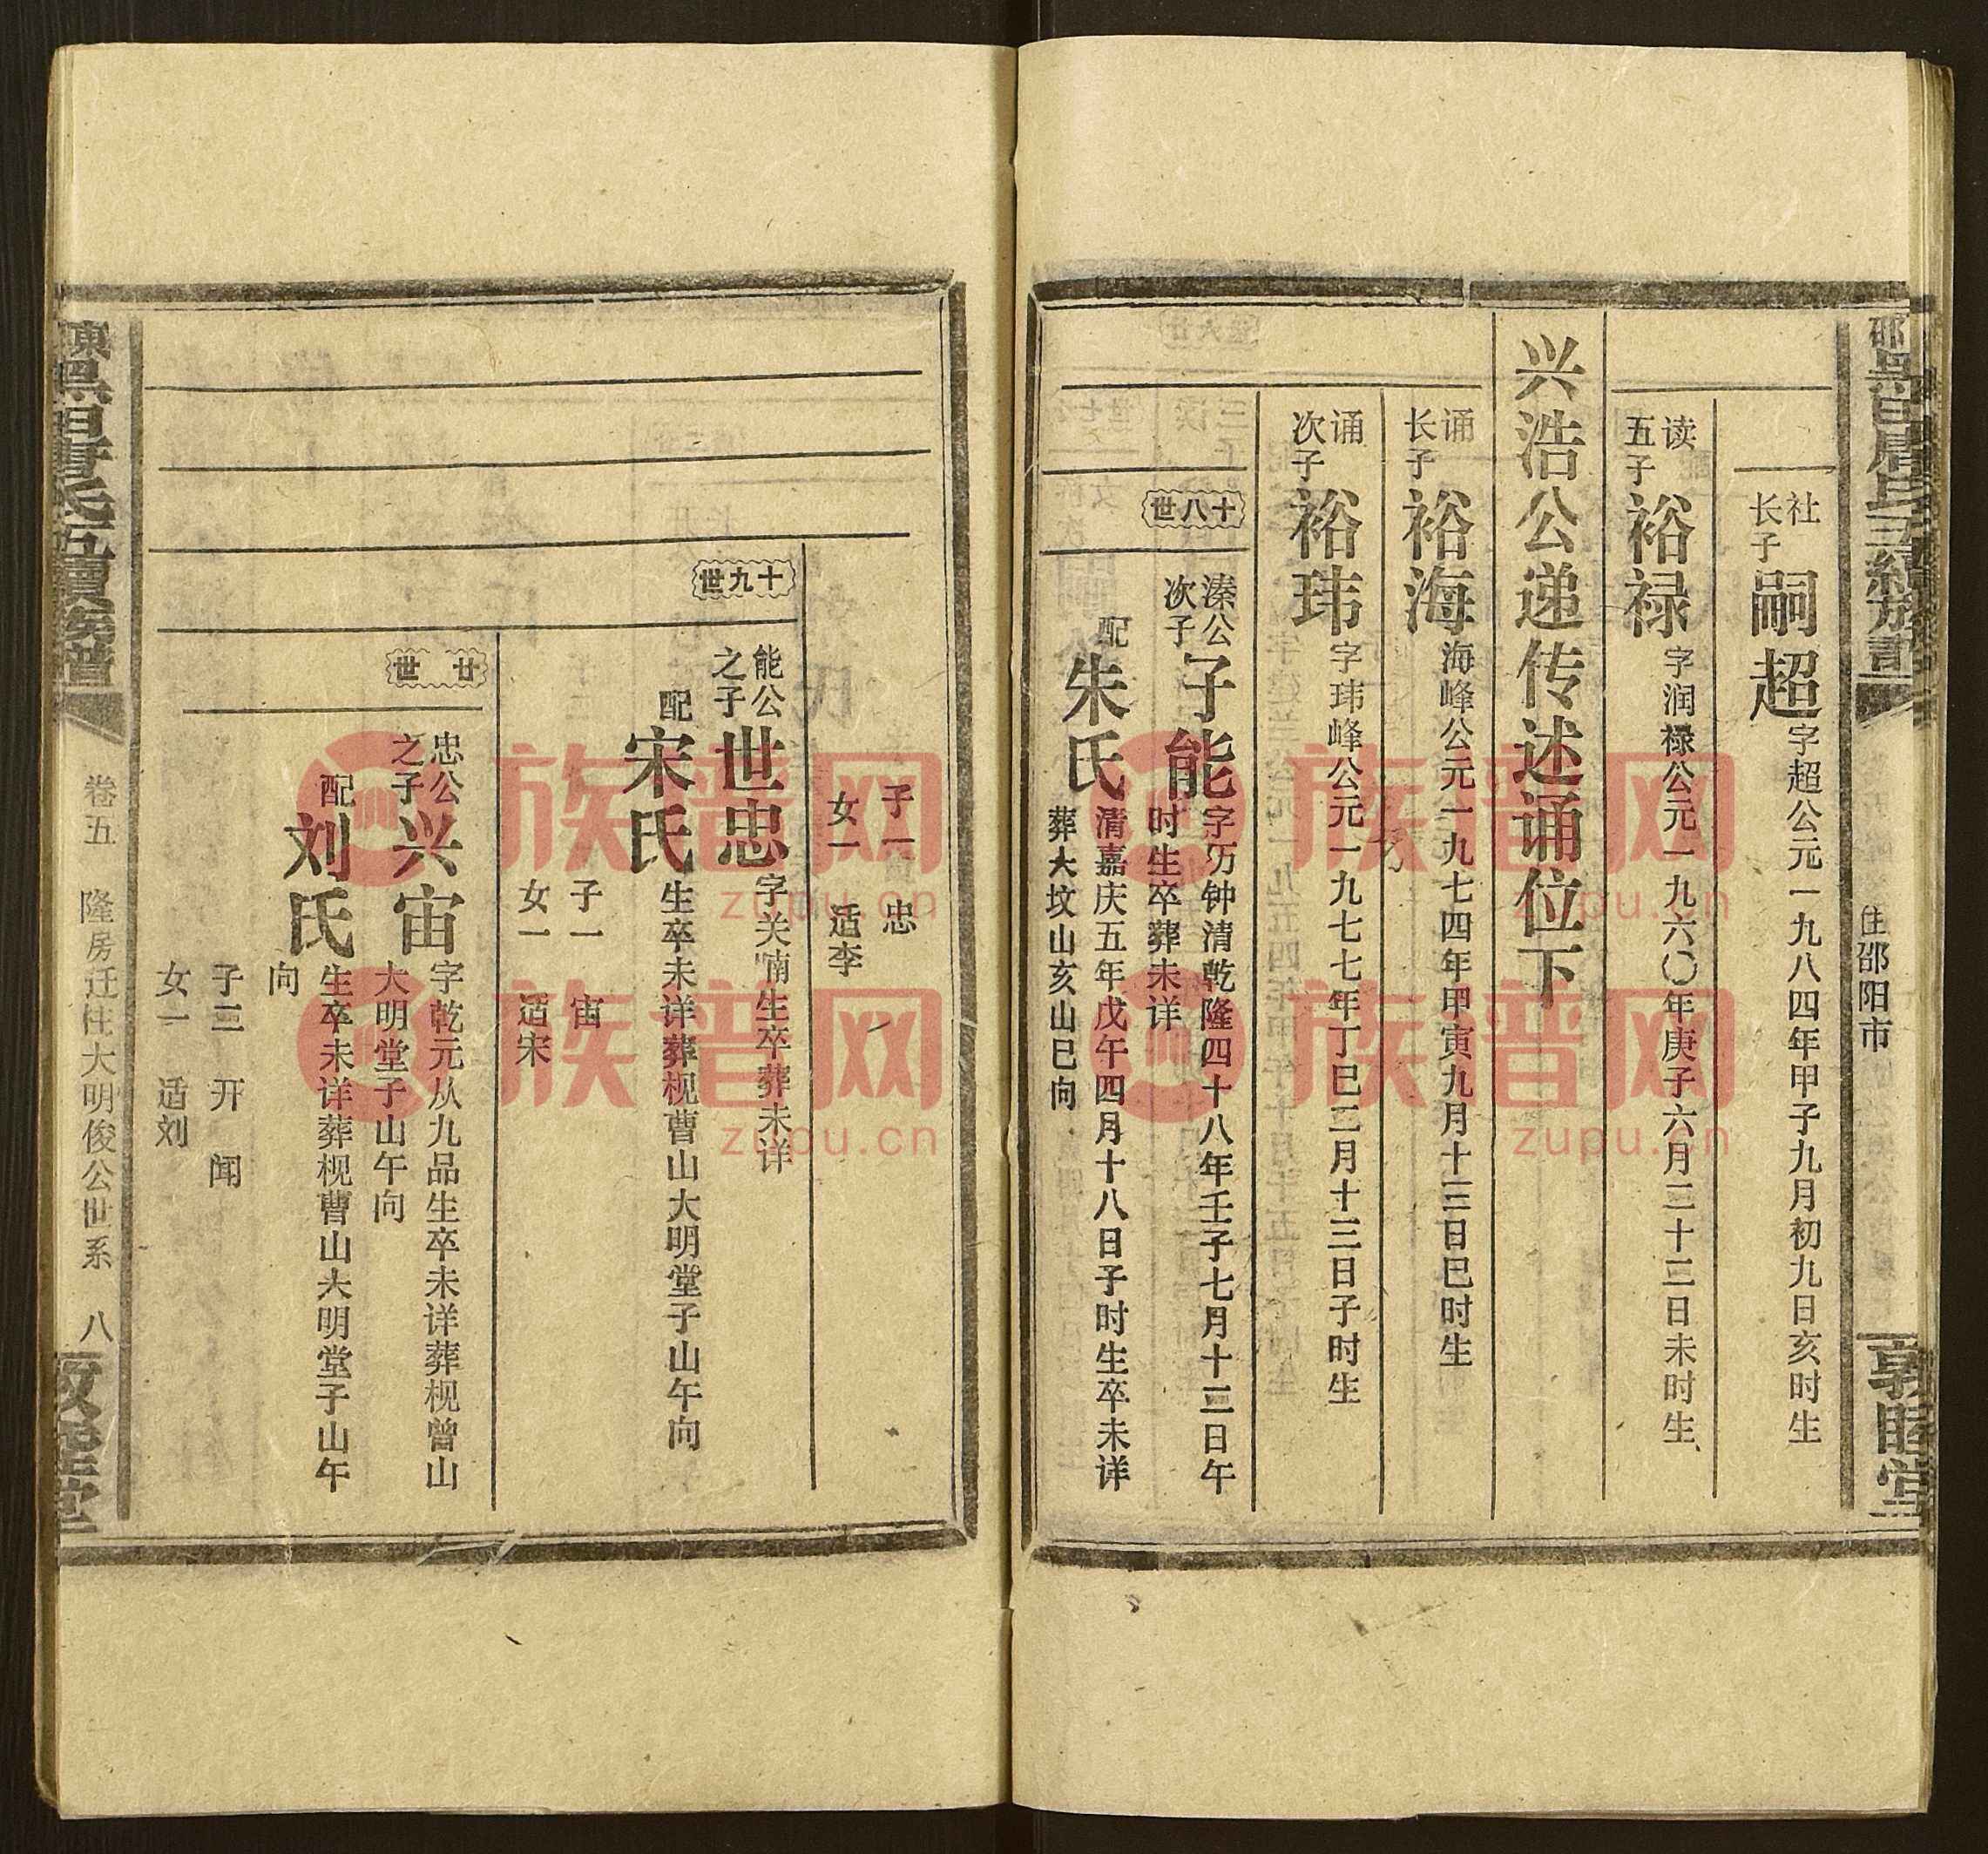 住邵阳市
敦睦堂
社
长子
嗣超
字超公元一九八四年甲子九月初九日亥时生
读
五子
裕禄
字润禄公元一九六〇年庚子六月二十三日未时生
兴浩公递传述诵位下
诵
长子
裕海
海峰公元一九七四年甲寅九月十三日巳时生
诵
次子
裕玮
字玮峰公元一九七七年丁巳二月十三日子时生
十八世
溱公
次子
子能
字历钟清乾隆四十八年壬子七月十三日午
时生卒葬未详
配
朱氏
清嘉庆五年戊午四月十八日子时生卒未详
葬大坟山亥山巳向
子一 忠
女一 适李
十九世
能公
之子
世忠
字关喃生卒葬未详
配
宋氏
生卒未详葬枧曹山大明堂子山午向
子一 宙
女一 适宋
廿世
忠公
之子
兴宙
字乾元从九品生卒未详葬枧曾山
大明堂子山午向
配
刘氏
生卒未详葬枧曹山大明堂子山午
向
子三 开 闻
女一 适刘
卷五 隆房迁住大明俊公世系 八
族谱网
zupu.cn
族谱网
zupu.cn
族谱网
zupu.cn
族谱网
zupu.cn